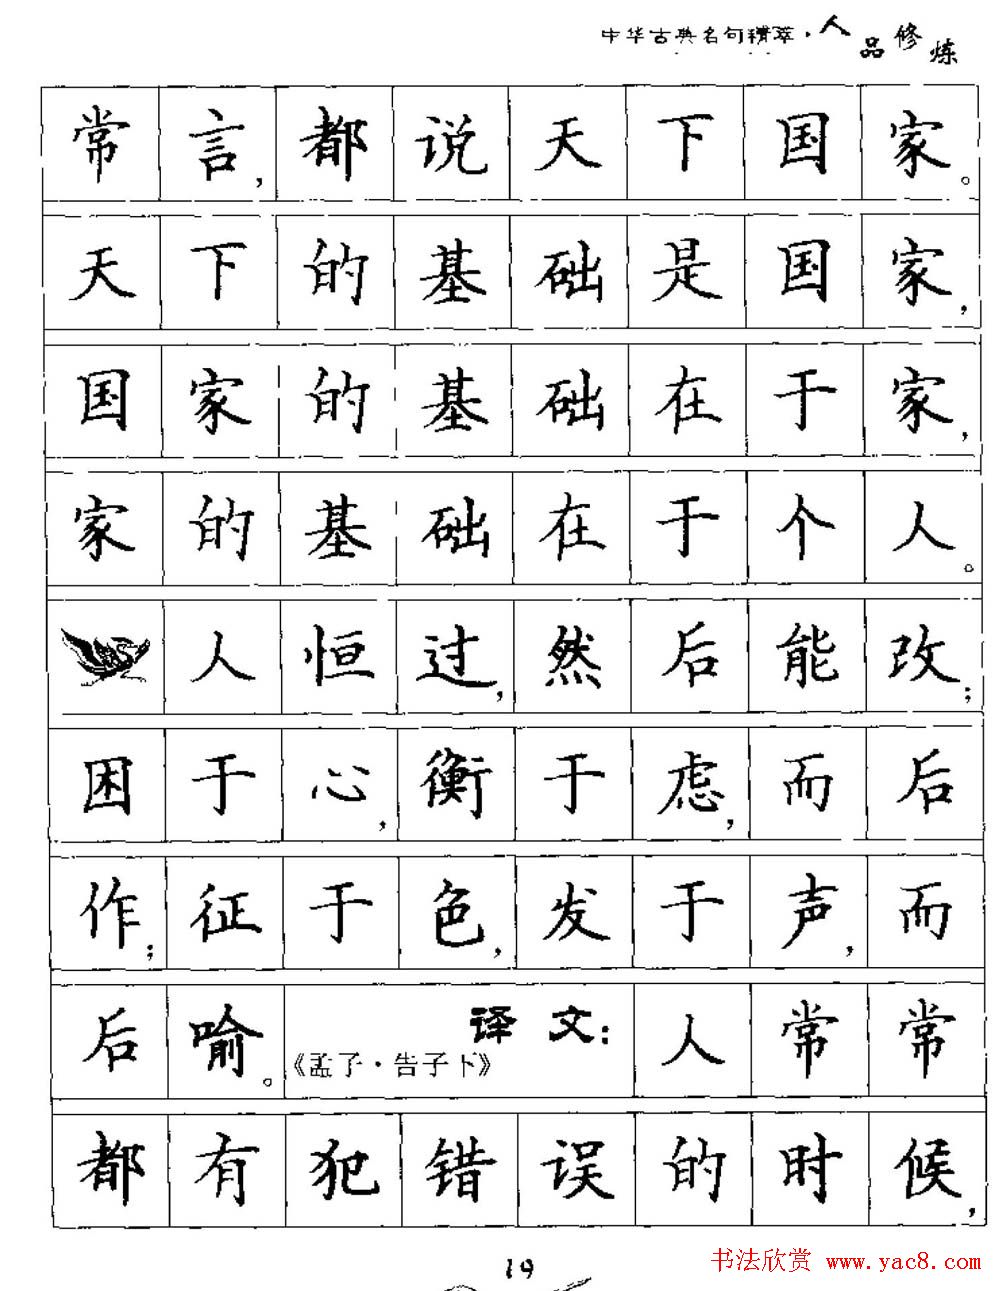 中华古典名句精萃·人品修炼
常言,都说天下国家。
天下的基础是国家,
国家的基础在于家,
家的基础在于个人。
人恒过,然后能改;
困于心,衡于虑,而后
作;征于色,发于声,而
后喻。《孟子·告子下》译文:人常常
都有犯错误的时候,
19
书法欣赏 www.yac8.com